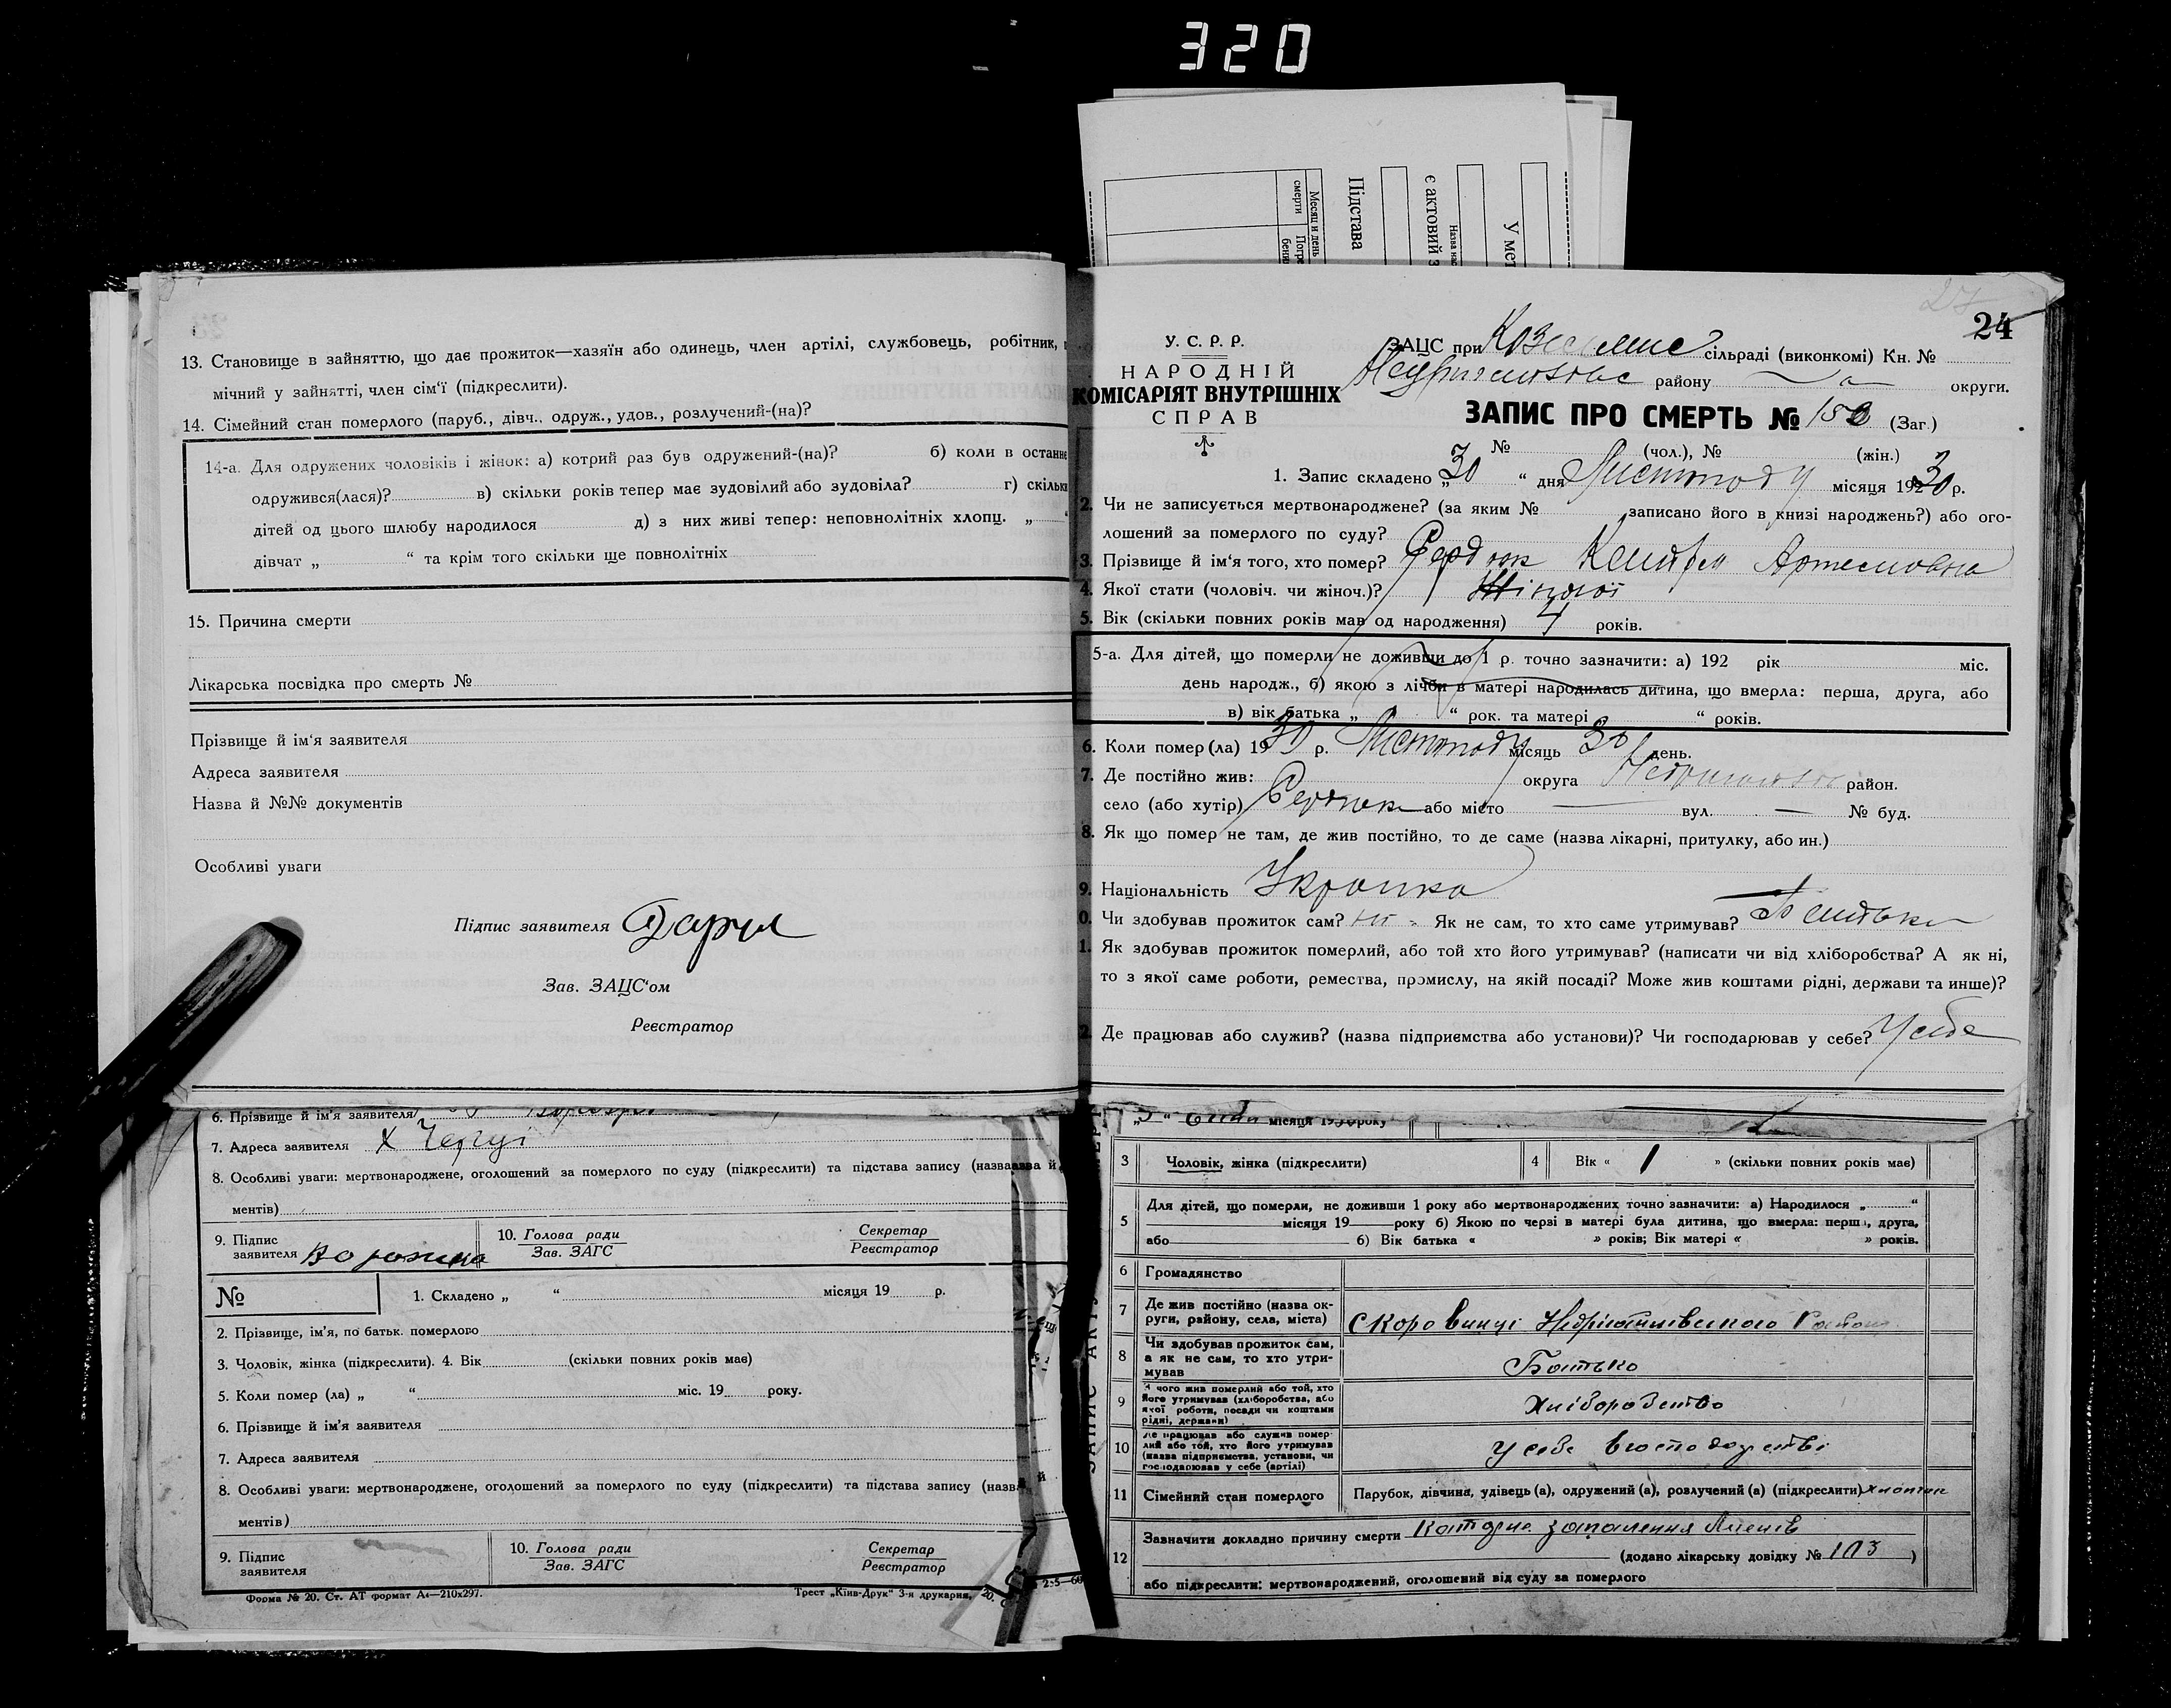 320
Підстава
є актовий з
Назва нас
У мет
Месяц и день
смерти
Погре
бения
13. Становище в зайняттю, що дає прожиток—хазяїн або одинець, член артілі, службовець, робітник,
мічний у зайнятті, член сім'ї (підкреслити).
14. Сімейний стан померлого (паруб., дівч., одруж., удов., розлучений-(на)?
14-а. Для одружених чоловіків і жінок: а) котрий раз був одружений-(на)? б) коли в останнє
одружився(лася)? в) скільки років тепер має зудовілий або зудовіла? г) скільки
дітей од цього шлюбу народилося д) з них живі тепер: неповнолітніх хлопц. „ “
дівчат „ “ та крім того скільки ще повнолітніх
15. Причина смерти
Лікарська посвідка про смерть №
Прізвище й ім'я заявителя
Адреса заявителя
Назва й №№ документів
Особливі уваги
Підпис заявителя
Зав. ЗАЦС'ом
Реєстратор
6. Прізвище й ім'я заявителя
7. Адреса заявителя х
8. Особливі уваги: мертвонароджене, оголошений за померлого по суду (підкреслити) та підстава запису (назва й
ментів)
9. Підпис
заявителя
10. Голова ради
Зав. ЗАГС
Секретар
Реєстратор
№
1. Складено „ “ місяця 19 р.
2. Прізвище, ім'я, по батьк. померлого
3. Чоловік, жінка (підкреслити). 4. Вік (скільки повних років має)
5. Коли помер (ла) „ “ міс. 19 року.
6. Прізвище й ім'я заявителя
7. Адреса заявителя
8. Особливі уваги: мертвонароджене, оголошений за померлого по суду (підкреслити) та підстава запису (назв
ментів)
9. Підпис
заявителя
10. Голова ради
Зав. ЗАГС
Секретар
Реєстратор
Форма № 20. Ст. АТ формат А4—210х297.
Трест „Київ-Друк“ 3-я друкарня,
24
У. С. Р. Р.
НАРОДНІЙ
КОМІСАРІЯТ ВНУТРІШНІХ
СПРАВ
ЗАЦС при сільраді (виконкомі) Кн. №
району округи.
ЗАПИС ПРО СМЕРТЬ № (Заг.)
№ (чол.), № (жін.)
1. Запис складено „30 “ дня Листопаду місяця 19230р.
2. Чи не записується мертвонароджене? (за яким № записано його в книзі народжень?) або ого-
лошений за померлого по суду?
3. Прізвище й ім'я того, хто помер? Сердюк Артемовна
4. Якої стати (чоловіч. чи жіноч.)? Жіночої
5. Вік (скільки повних років мав од народження) 4 років.
5-а. Для дітей, що померли не доживши до 1 р. точно зазначити: а) 192 рік міс.
день народж., б) якою з лічби в матері народилась дитина, що вмерла: перша, друга, або
в) вік батька „ “ рок. та матері “ років.
6. Коли помер (ла) 1930 р. Листопаду місяць 30 день.
7. Де постійно жив: округа район.
село (або хутір) Сердюки або місто — вул. — № буд.
8. Як що помер не там, де жив постійно, то де саме (назва лікарні, притулку, або ин.)
9. Національність Українка
0. Чи здобував прожиток сам? ні Як не сам, то хто саме утримував? Батьки
1. Як здобував прожиток померлий, або той хто його утримував? (написати чи від хліборобства? А як ні,
то з якої саме роботи, ремества, промислу, на якій посаді? Може жив коштами рідні, держави та инше)?
2. Де працював або служив? (назва підприємства або установи)? Чи господарював у себе? У себе
місяця 1930 року
3 Чоловік, жінка (підкреслити) 4 Вік « 1 » (скільки повних років має)
5 Для дітей, що померли, не доживши 1 року або мертвонароджених точно зазначити: а) Народилося „ “
місяця 19 року б) Якою по черзі в матері була дитина, що вмерла: перша, друга,
або 6) Вік батька « » років; Вік матері « » років.
6 Громадянство
7 Де жив постійно (назва ок-
руги, району, села, міста)
8 Чи здобував прожиток сам,
а як не сам, то хто утри-
мував Батько
9 З чого жив померлий або той, хто
його утримував (хліборобства, або
якої роботи, посади чи коштами
рідні, держави) Хліборобство
10 Де працював або служив помер-
лий або той, хто його утримував
(назва підприємства, установи, чи
господарював у себе (артілі) у себе в господарстві
11 Сімейний стан померлого Парубок, дівчина, удівець (а), одружений (а), розлучений (а) (підкреслити) хлопчик
12 Зазначити докладно причину смерти запалення
(додано лікарську довідку № 103 )
або підкреслити: мертвонароджений, оголошений від суду за померлого